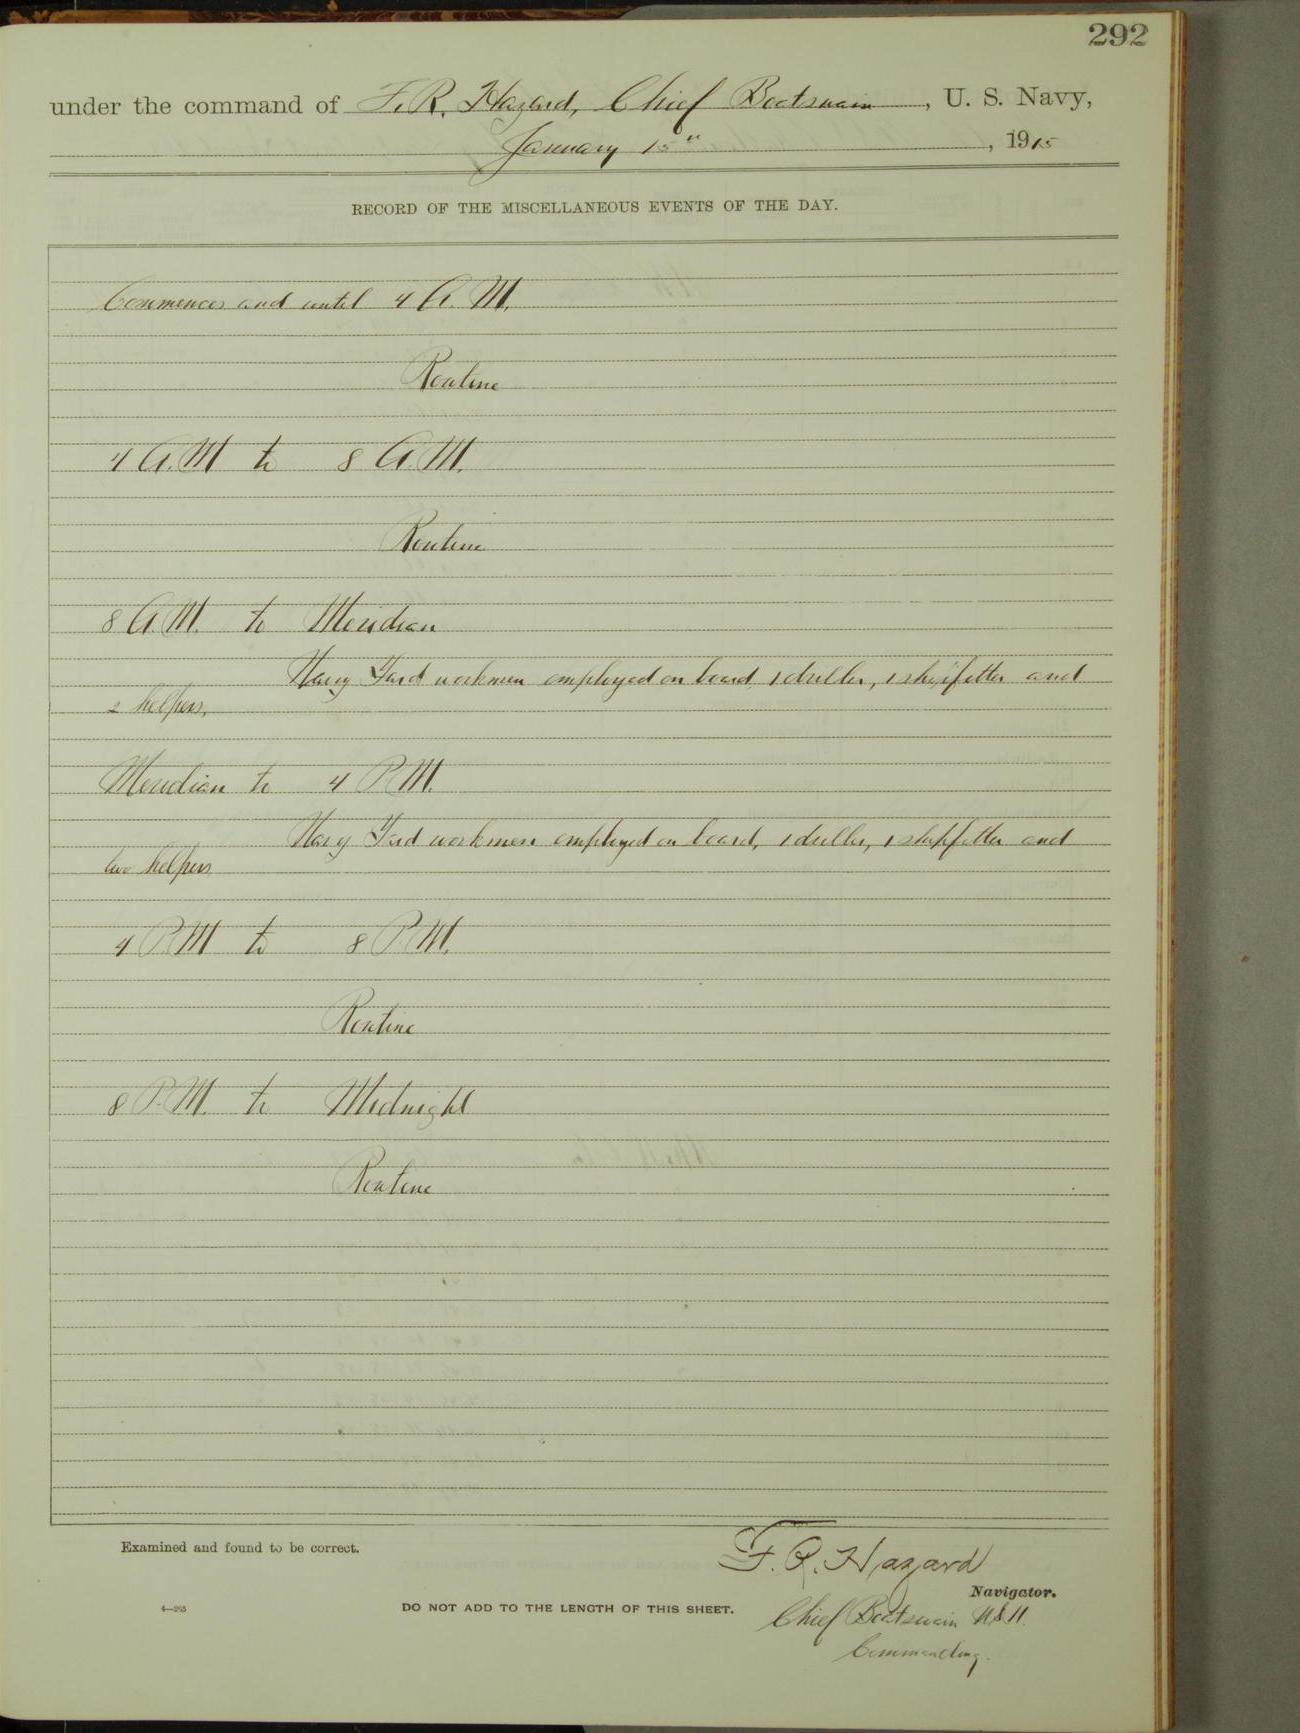 292
under the command of F. R. Hazard, Chief Boatswain, U. S. Navy,
January 15", 1915
RECORD OF THE MISCELLANEOUS EVENTS OF THE DAY.
Commences and until 4 A. M.
Routine
4 A.M to 8 A.M.
Routine
8 A M. to Meridian
Navy Yard workmen employed on board, 1 driller, 1 shipfitter and
2 helpers.
Meridian to 4 P.M.
Navy Yard workmen employed on board, 1 driller, 1 shipfitter and
two helpers
4 P.M to 8 P.M.
Routine
8 P.M. to Midnight
Routine
Examined and found to be correct.
F. R. Hazard
Navigator.
4—265
DO NOT ADD TO THE LENGTH OF THIS SHEET.
Chief Boatswain U.S.N.
Commanding.